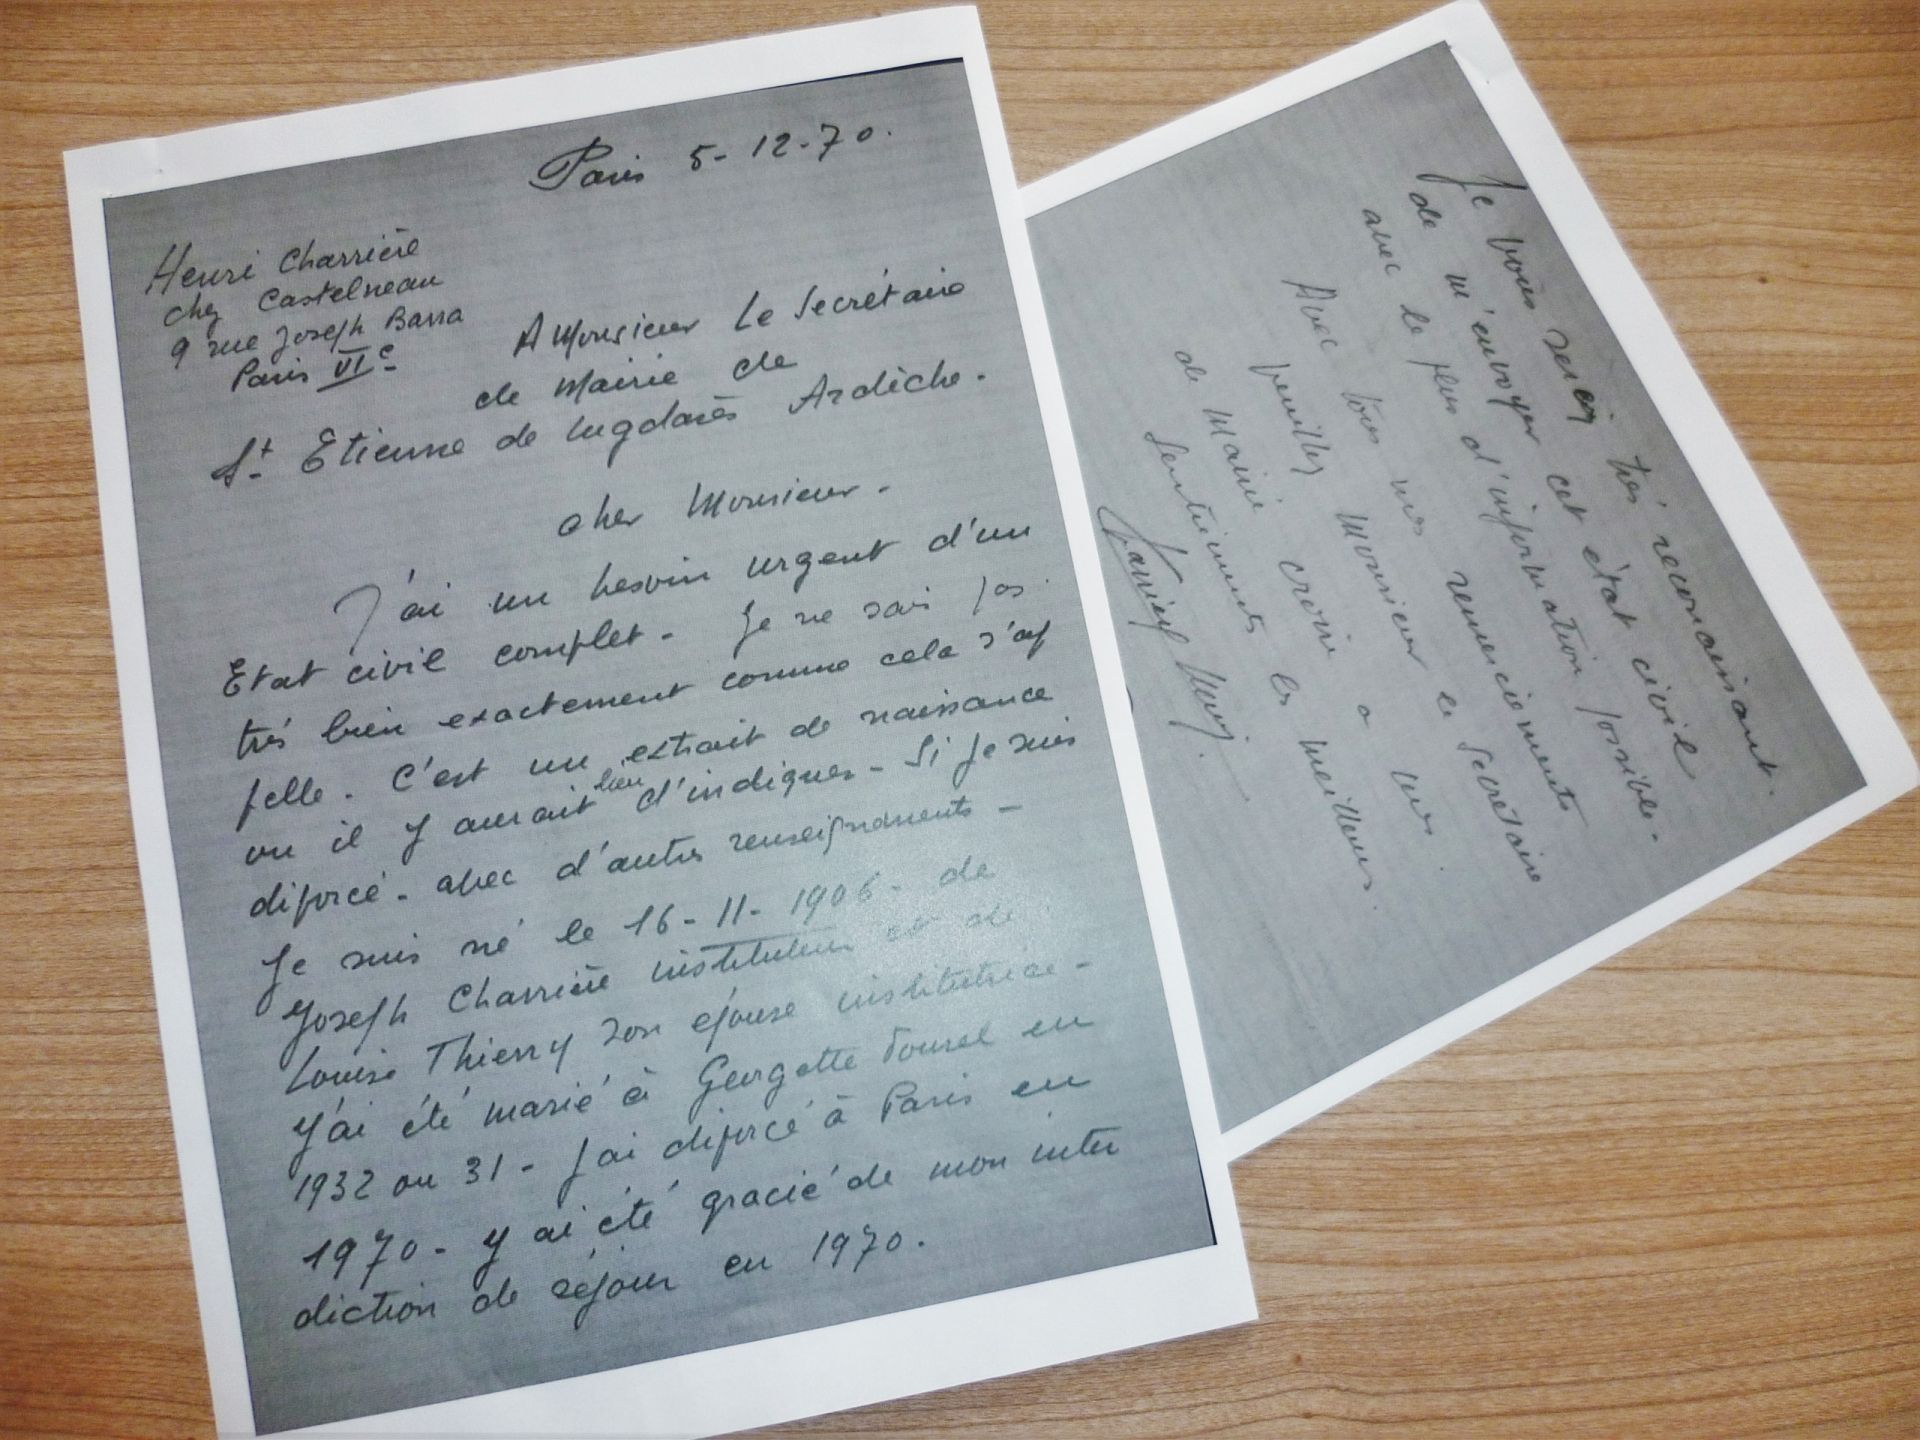 Paris 5-12-70.
Henri Charrière
chez Castelneau
9 rue Joseph Barra
Paris VIe
A Monsieur Le Secrétaire
de Mairie de
St. Etienne de Lugdarès Ardèche.
cher Monsieur.
J'ai un besoin urgent d'un
Etat civil complet - Je ne sais pas
très bien exactement comme cela s'ap
pelle. C'est un extrait de naissance
ou il y aurait lieu d'indiquer - Si je suis
diforcé - avec d'autres renseignements -
Je suis né le 16-11-1906 - de
Joseph Charrière instituteur et de
Louise Thierry son épouse institutrice -
J'ai été marié à Georgette Fourel en
1932 ou 31 - J'ai diforcé à Paris en
1970 - J'ai été gracié de mon inter
diction de séjour en 1970.
Je vous serai très reconnaissant
de m'envoyer cet état civil
avec le plus d'information possible.
Avec tous mes remerciements
veuillez Monsieur le Secrétaire
de Mairie croire a mes
sentiments les meilleurs.